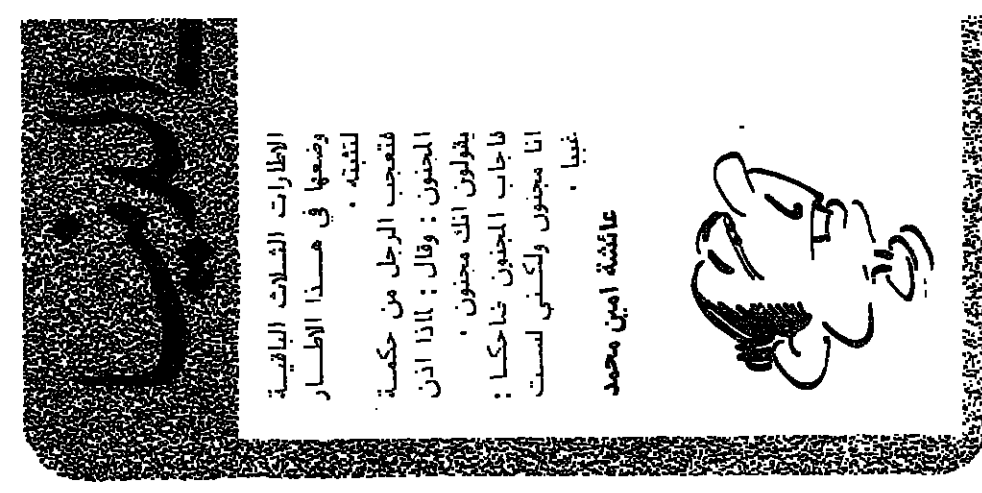 الاطارات الثلاث الباقية
وضعها في هــذا الاطــار
لتثبته .
فتعجب الرجل من حكمــة
المجنون : وقال : لماذا اذن
يقولون انك مجنون .
فاجاب المجنون ضاحكــا :
انا مجنون ولكــني لست
غبيا .
عائشة امين محمد